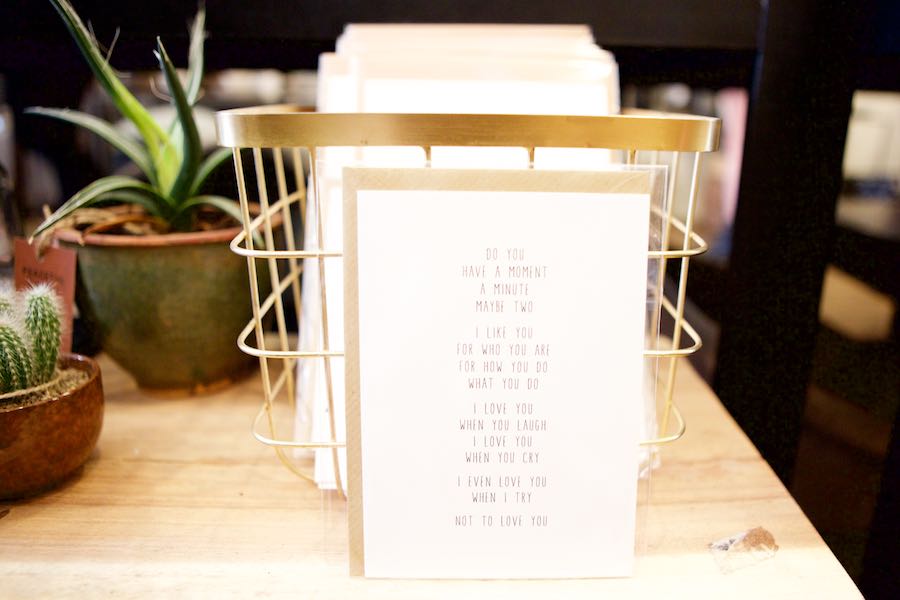 DO YOU
HAVE A MOMENT
A MINUTE
MAYBE TWO
I LIKE YOU
FOR WHO YOU ARE
FOR HOW YOU DO
WHAT YOU DO
I LOVE YOU
WHEN YOU LAUGH
I LOVE YOU
WHEN YOU CRY
I EVEN LOVE YOU
WHEN I TRY
NOT TO LOVE YOU